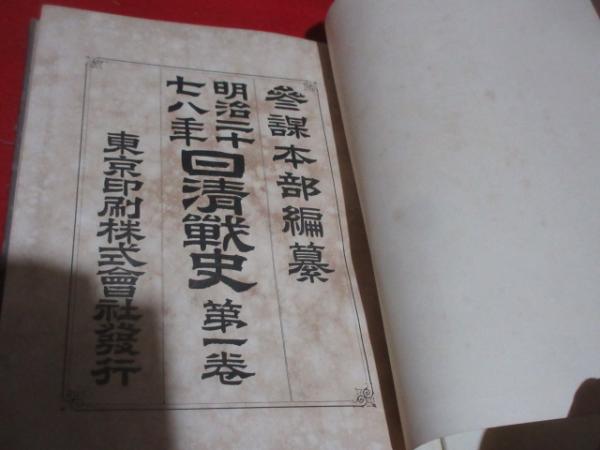 參謀本部編纂
明治二十
七八年日清戰史 第一卷
東京印刷株式會社發行